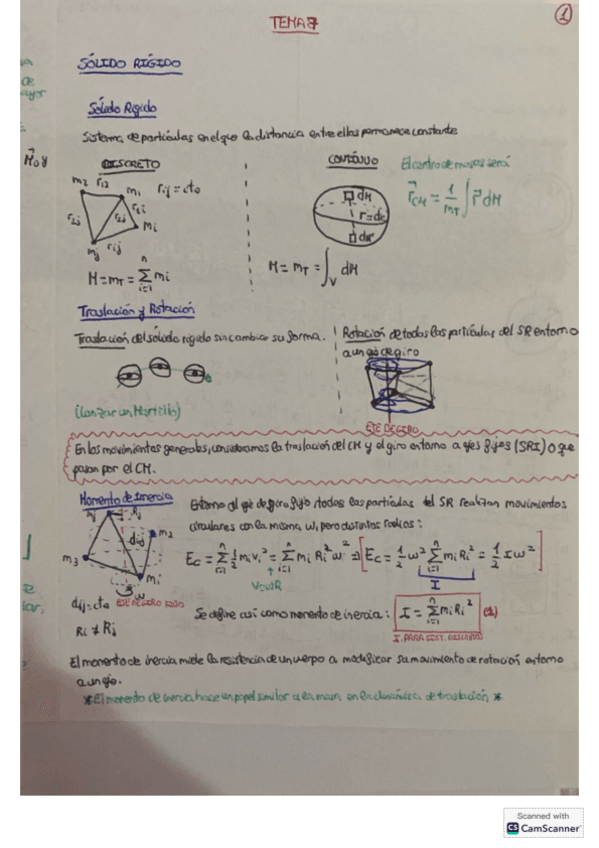 TEMA 7
1
SÓLIDO RÍGIDO
Sólido Rígido
Sistema de partículas en el que la distancia entre ellas permanece constante
DISCRETO
CONTÍNUO
El centro de masas será
m2 r12 m1 rij = cte
r2j r2i r1i mi
mj rij
dM
r = dc
dM
r⃗CM = 1/mT ∫ r⃗ dM
M = mT = Σ(i=1→n) mi
M = mT = ∫V dM
Traslación y Rotación
Traslación del sólido rígido sin cambiar su forma.
Rotación de todas las partículas del SR entorno
a un eje de giro
(lanzar un Martillo)
EJE DE GIRO
En los movimientos generales, consideramos la traslación del CM y el giro entorno a ejes fijos (SRI) o que
pasan por el CM.
Momento de Inercia
Entorno al eje de giro fijo todas las partículas del SR realizan movimientos
circulares con la misma ω, pero distintos radios:
mj Rj
m2
dij
m3
mi
ω
Ec = Σ(i=1→n) ½ mi vi² = Σ(i=1→n) mi Ri² ω² ⇒ [Ec = ½ ω² Σ(i=1→n) mi Ri² = ½ I ω²]
V=ωR
I
dij = cte EJE DE GIRO FIJO
Ri ≠ Rj
Se define así como momento de inercia: I = Σ(i=1→n) mi Ri² (1)
I. PARA DIST. DISCRETAS
El momento de inercia mide la resistencia de un cuerpo a modificar su movimiento de rotación entorno
a un eje.
*El momento de inercia hace un papel similar a la masa, en la dinámica de traslación*
Scanned with
CS CamScanner